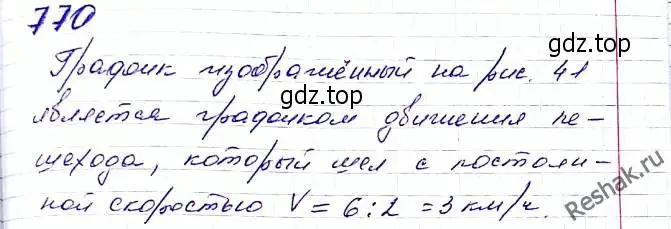 770
gdz.top
График изображённый на рис. 41
является графиком движения пе-
gdz.top
шехода, который шел с постоян-
ной скоростью V = 6 : 2 = 3 км/ч.
Reshak.ru